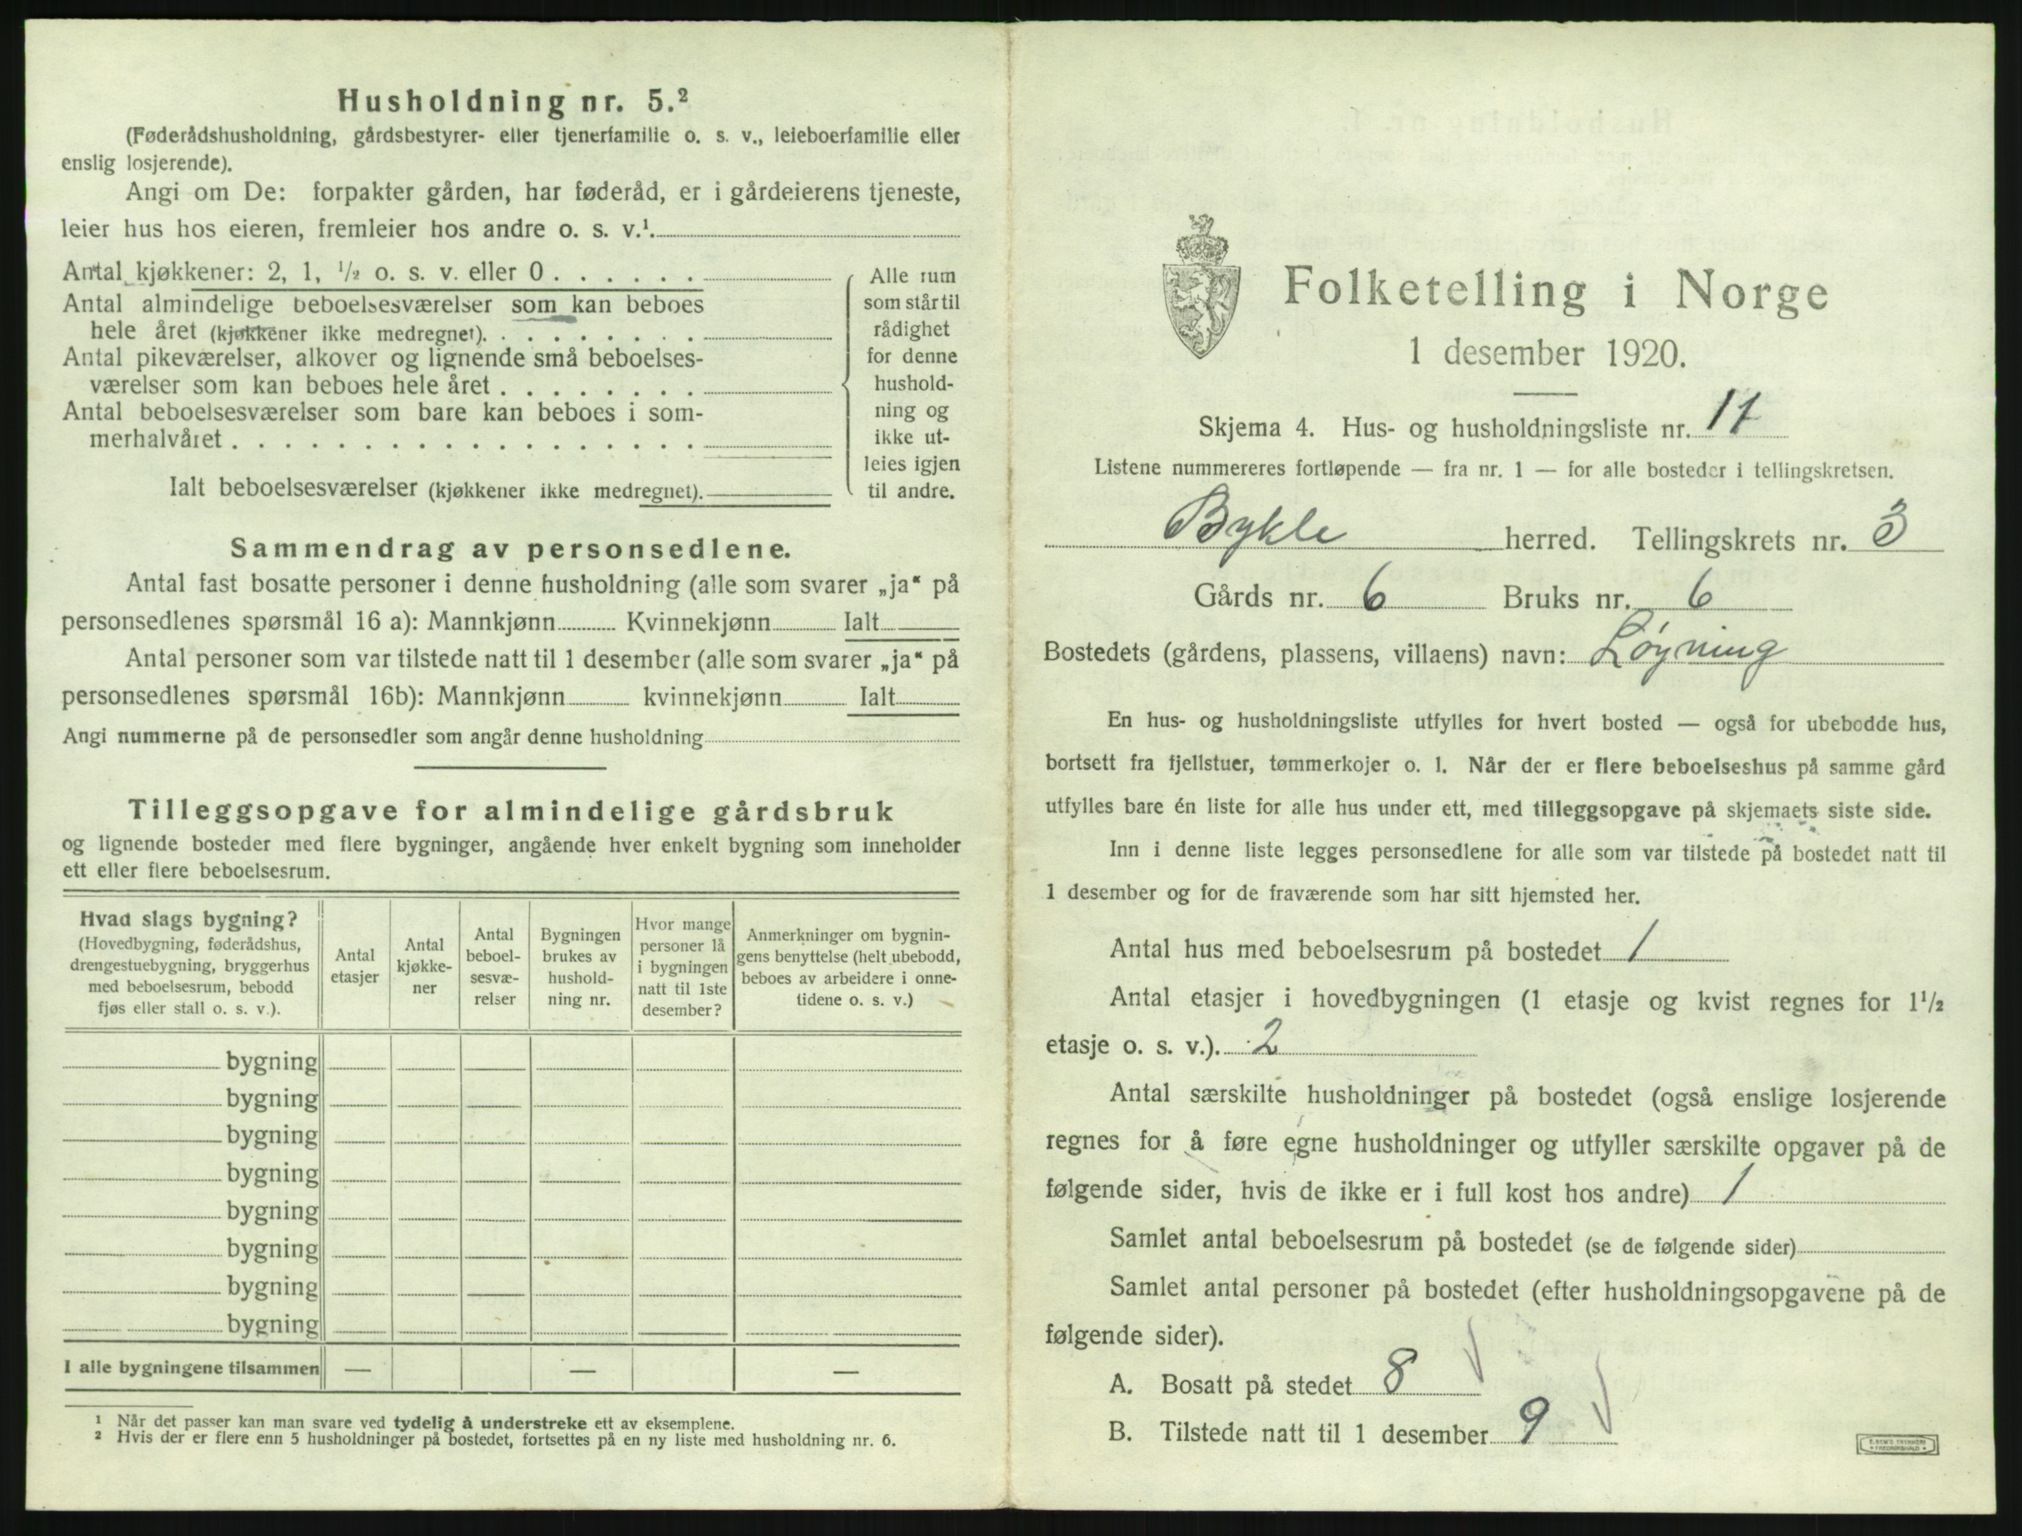 Husholdning nr. 5.²
(Føderådshusholdning, gårdsbestyrer- eller tjenerfamilie o. s. v., leieboerfamilie eller
enslig losjerende).
Angi om De: forpakter gården, har føderåd, er i gårdeierens tjeneste,
leier hus hos eieren, fremleier hos andre o. s. v.¹.
Antal kjøkkener: 2, 1, ½ o. s. v. eller 0 . . . . . .
Antal almindelige beboelsesværelser som kan beboes
hele året (kjøkkener ikke medregnet). . . . . . . . .
Antal pikeværelser, alkover og lignende små beboelses-
værelser som kan beboes hele året . . . . . . . .
Antal beboelsesværelser som bare kan beboes i som-
merhalvåret . . . . . . . . . . . . . . . . . .
Ialt beboelsesværelser (kjøkkener ikke medregnet).
Alle rum
som står til
rådighet
for denne
hushold-
ning og
ikke ut-
leies igjen
til andre.
Sammendrag av personsedlene.
Antal fast bosatte personer i denne husholdning (alle som svarer „ja“ på
personsedlenes spørsmål 16 a): Mannkjønn Kvinnekjønn Ialt
Antal personer som var tilstede natt til 1 desember (alle som svarer „ja“ på
personsedlenes spørsmål 16b): Mannkjønn kvinnekjønn Ialt
Angi nummerne på de personsedler som angår denne husholdning
Tilleggsopgave for almindelige gårdsbruk
og lignende bosteder med flere bygninger, angående hver enkelt bygning som inneholder
ett eller flere beboelsesrum.
Hvad slags bygning?
(Hovedbygning, føderådshus,
drengestuebygning, bryggerhus
med beboelsesrum, bebodd
fjøs eller stall o. s. v.).
Antal
etasjer
Antal
kjøkke-
ner
Antal
beboel-
sesvæ-
relser
Bygningen
brukes av
hushold-
ning nr.
Hvor mange
personer lå
i bygningen
natt til 1ste
desember?
Anmerkninger om bygnin-
gens benyttelse (helt ubebodd,
beboes av arbeidere i onne-
tidene o. s. v.)
bygning
bygning
bygning
bygning
bygning
bygning
bygning
bygning
I alle bygningene tilsammen — — —
¹ Når det passer kan man svare ved tydelig å understreke ett av eksemplene.
² Hvis der er flere enn 5 husholdninger på bostedet, fortsettes på en ny liste med husholdning nr. 6.
Folketelling i Norge
1 desember 1920.
Skjema 4. Hus- og husholdningsliste nr. 17
Listene nummereres fortløpende — fra nr. 1 — for alle bosteder i tellingskretsen.
Bykle herred. Tellingskrets nr. 3
Gårds nr. 6 Bruks nr. 6
Bostedets (gårdens, plassens, villaens) navn: Løyning
En hus- og husholdningsliste utfylles for hvert bosted — også for ubebodde hus,
bortsett fra fjellstuer, tømmerkojer o. l. Når der er flere beboelseshus på samme gård
utfylles bare én liste for alle hus under ett, med tilleggsopgave på skjemaets siste side.
Inn i denne liste legges personsedlene for alle som var tilstede på bostedet natt til
1 desember og for de fraværende som har sitt hjemsted her.
Antal hus med beboelsesrum på bostedet 1
Antal etasjer i hovedbygningen (1 etasje og kvist regnes for 1½
etasje o. s. v.). 2
Antal særskilte husholdninger på bostedet (også enslige losjerende
regnes for å føre egne husholdninger og utfyller særskilte opgaver på de
følgende sider, hvis de ikke er i full kost hos andre) 1
Samlet antal beboelsesrum på bostedet (se de følgende sider)
Samlet antal personer på bostedet (efter husholdningsopgavene på de
følgende sider).
A. Bosatt på stedet 8
B. Tilstede natt til 1 desember 9